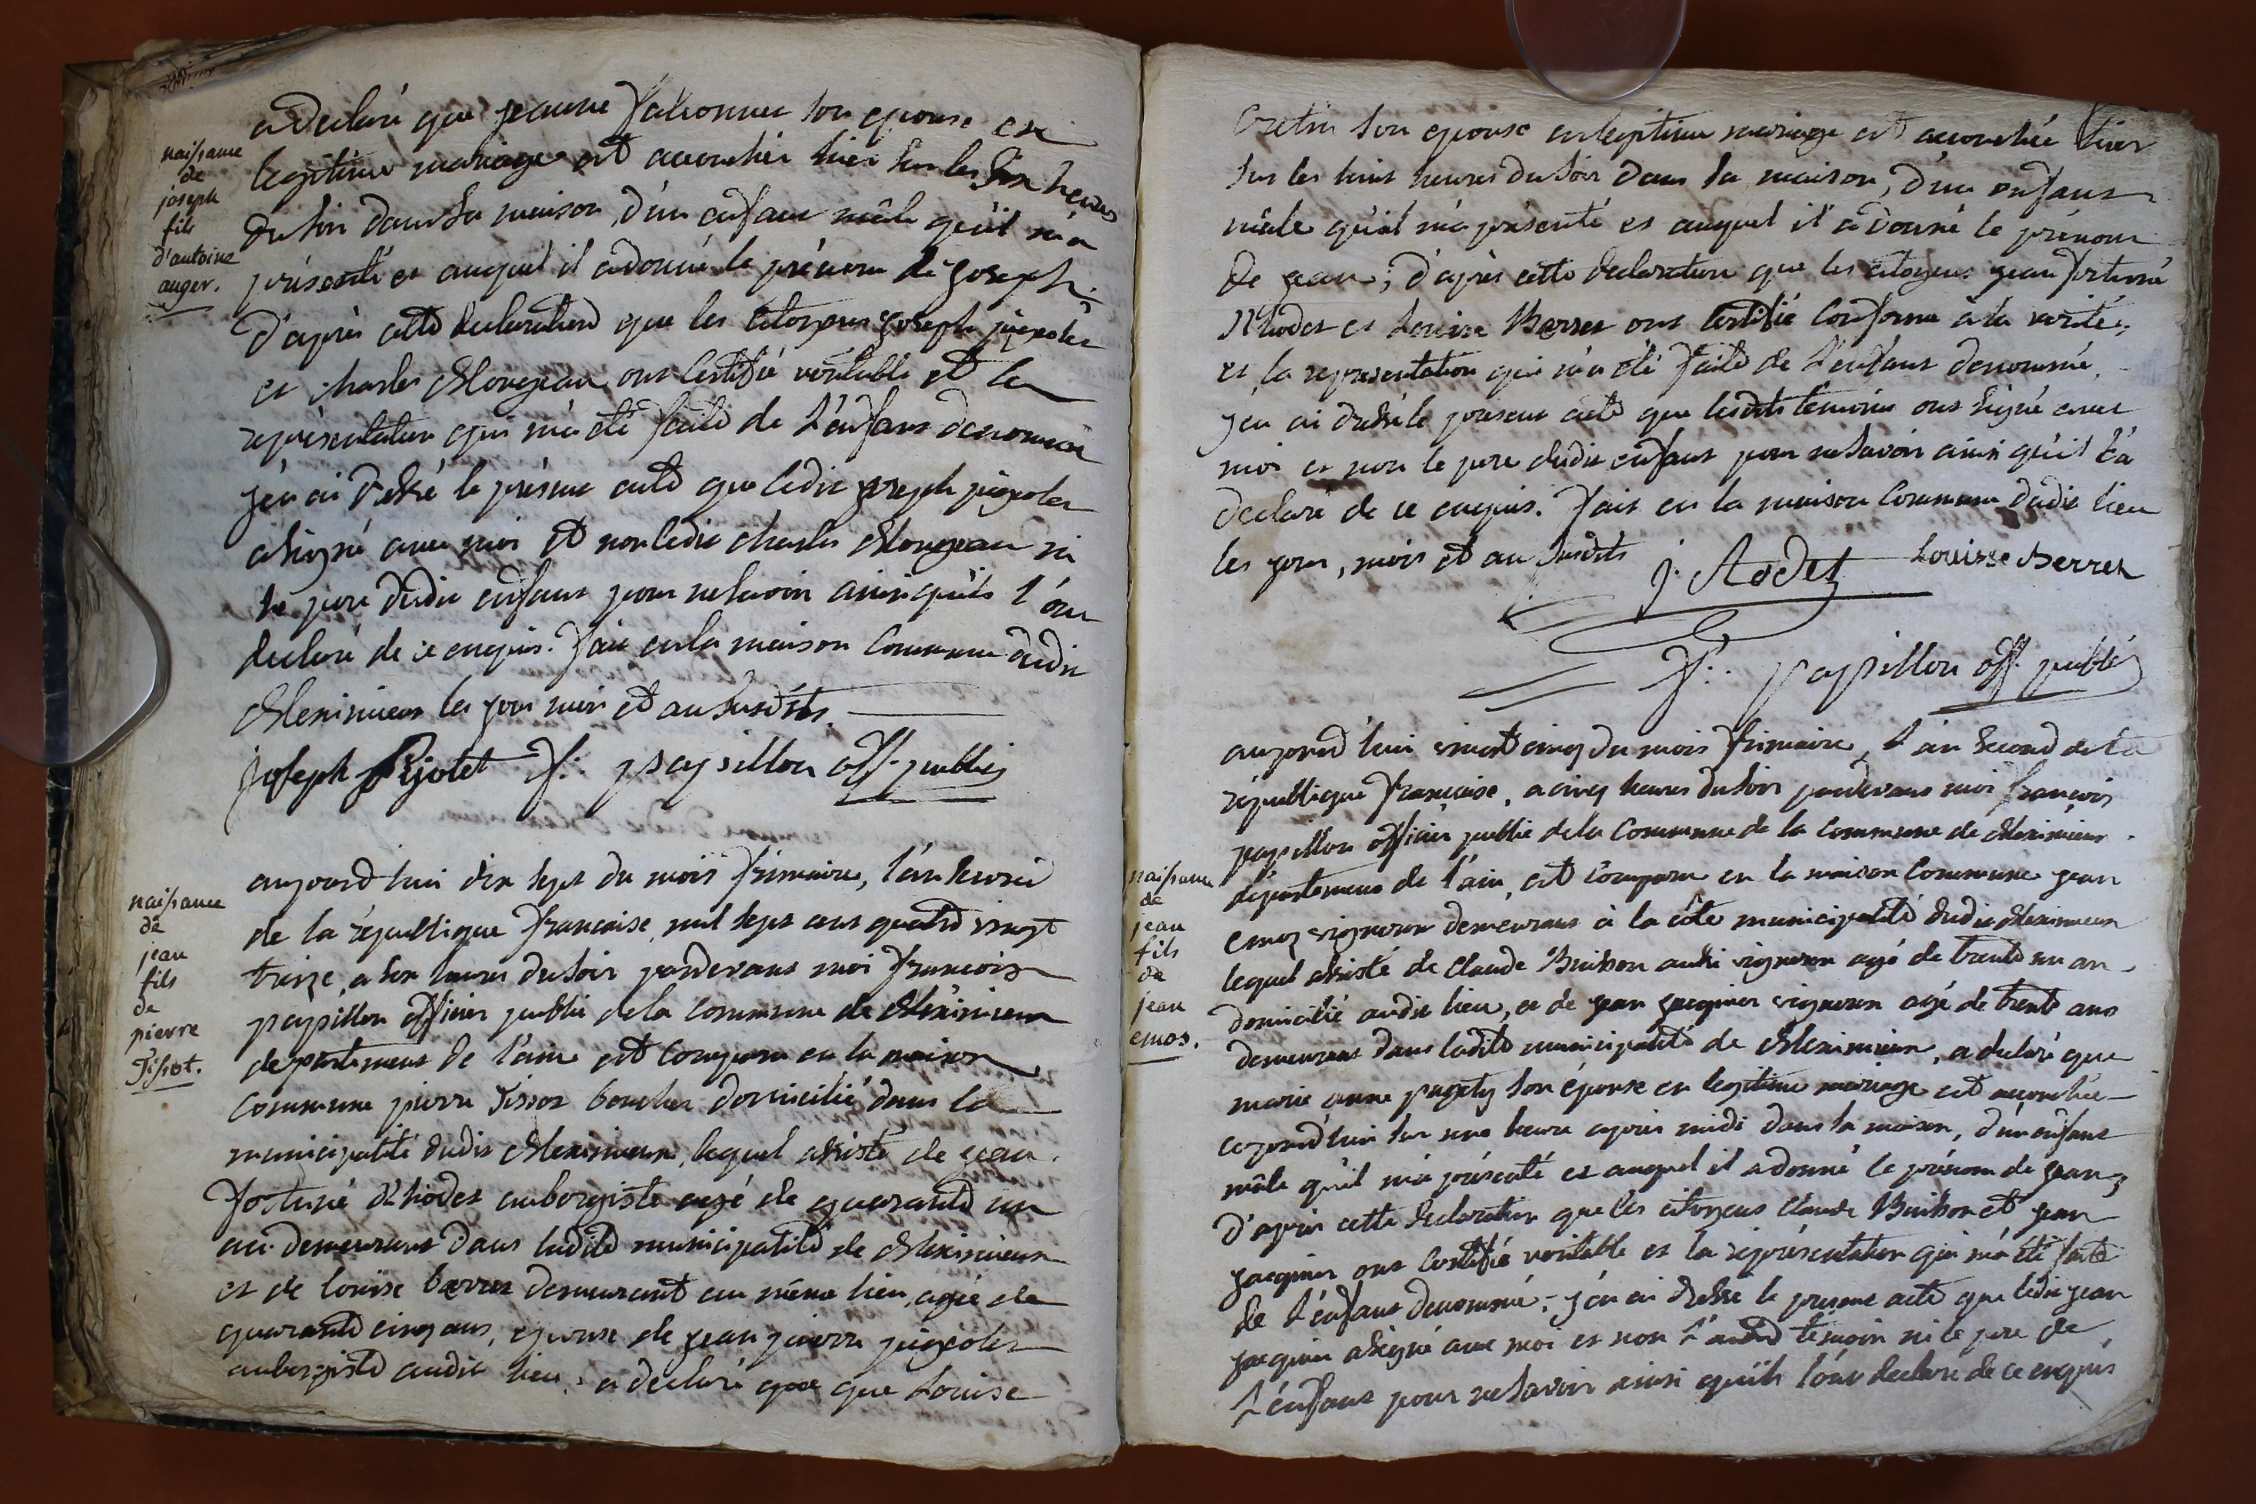 naissance
de
joseph
fils
d'antoine
auger.
a declaré que jeanne falconnet son epouse en
legitime mariage est accouchée hier sur les six heures
du soir dans sa maison, d'un enfant mâle qu'il m'a
présenté et auquel il a donné le prénom de joseph.
d'après cette declaration que les citoyens joseph pijolet
et charles Monejean ont certifié véritable et la
représentation qui m'a été faite de l'enfant denommé
j'en ai dressé le présent acte que ledit joseph pijolet
a signé avec moi et non ledit charles Monejean ni
le pere dudit enfant pour ne savoir ainsi qu'ils l'ont
declaré de ce enquis. fait en la maison commune dudit
Meximieux les jour mois et an susdits.
Joseph Pijolet f: papillon off. public
naissance
de
jean
fils
de
pierre
Tissot.
aujourd'hui dix sept du mois frimaire, l'an second
de la république francaise, mil sept cent quatre vingt
treize, a six heures du soir pardevant moi francois
papillon officier public de la commune de Meximieux
departement de l'ain est comparu en la maison
commune pierre Tissot boucher domicilié dans la
municipalité dudit Meximieux, lequel assisté de jean
fortuné Rhodet aubergiste agé de quarante un
ans demeurant dans ladite municipalité de Meximieux
et de louise berret demeurant au même lieu, agée de
quarante cinq ans, epouse de jean pierre pijolet
aubergiste audit lieu, a declaré que que Louise
Cretin son epouse en legitime mariage est accouchée hier
sur les huit heures du soir dans sa maison, d'un enfant
mâle qu'il m'a présenté et auquel il a donné le prénom
de jean; d'après cette declaration que les citoyens jean fortuné
Rhodet et Louise Berret ont certifié conforme à la verité,
et la representation qui m'a été faite de l'enfant denommé,
j'en ai dressé le present acte que lesdits temoins ont signé avec
moi et non le pere dudit enfant pour ne savoir ainsi qu'il l'a
declaré de ce enquis. fait en la maison commune dudit lieu
les jour, mois et an susdits
j. Rodet Louisse Berret
f: papillon off. public
naissance
de
jean
fils
de
jean
emos.
aujourd'hui vingt cinq du mois frimaire, l'an second de la
république francaise, a cinq heures du soir pardevant moi francois
papillon officier public de la commune de la commune de Meximieux
departement de l'ain, est comparu en la maison commune jean
emoz vigneron demeurant à la côte municipalité dudit Meximieux
lequel assisté de Claude Buisson aussi vigneron agé de trente un an
domicilié audit lieu, et de jean jacquier vigneron agé de trente ans
demeurant dans ladite municipalité de Meximieux, a declaré que
marie anne son épouse en legitime mariage est accouchée
cejourd'hui sur une heure après midi dans sa maison, d'un enfant
mâle qu'il m'a présenté et auquel il a donné le prénom de jean,
d'après cette declaration que les citoyens Claude Buisson et jean
jacquier ont certifié veritable et la représentation qui m'a été faite
de l'enfant denommé, j'en ai dressé le present acte que ledit jean
jacquier a signé avec moi et non l'autre temoin ni le pere de
l'enfant pour ne savoir ainsi qu'ils l'ont declaré de ce enquis